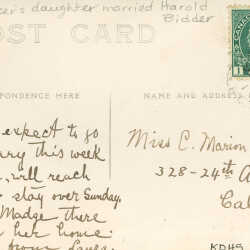 cer's daughter married Harold
Bidder
POST CARD
CANADA
1
PONDENCE HERE
NAME AND ADDRESS
expect to go
this week
will reach
stay over Sunday.
Madge there
her home
from
Miss C. Marion
328-24th A
Cal
KDHS